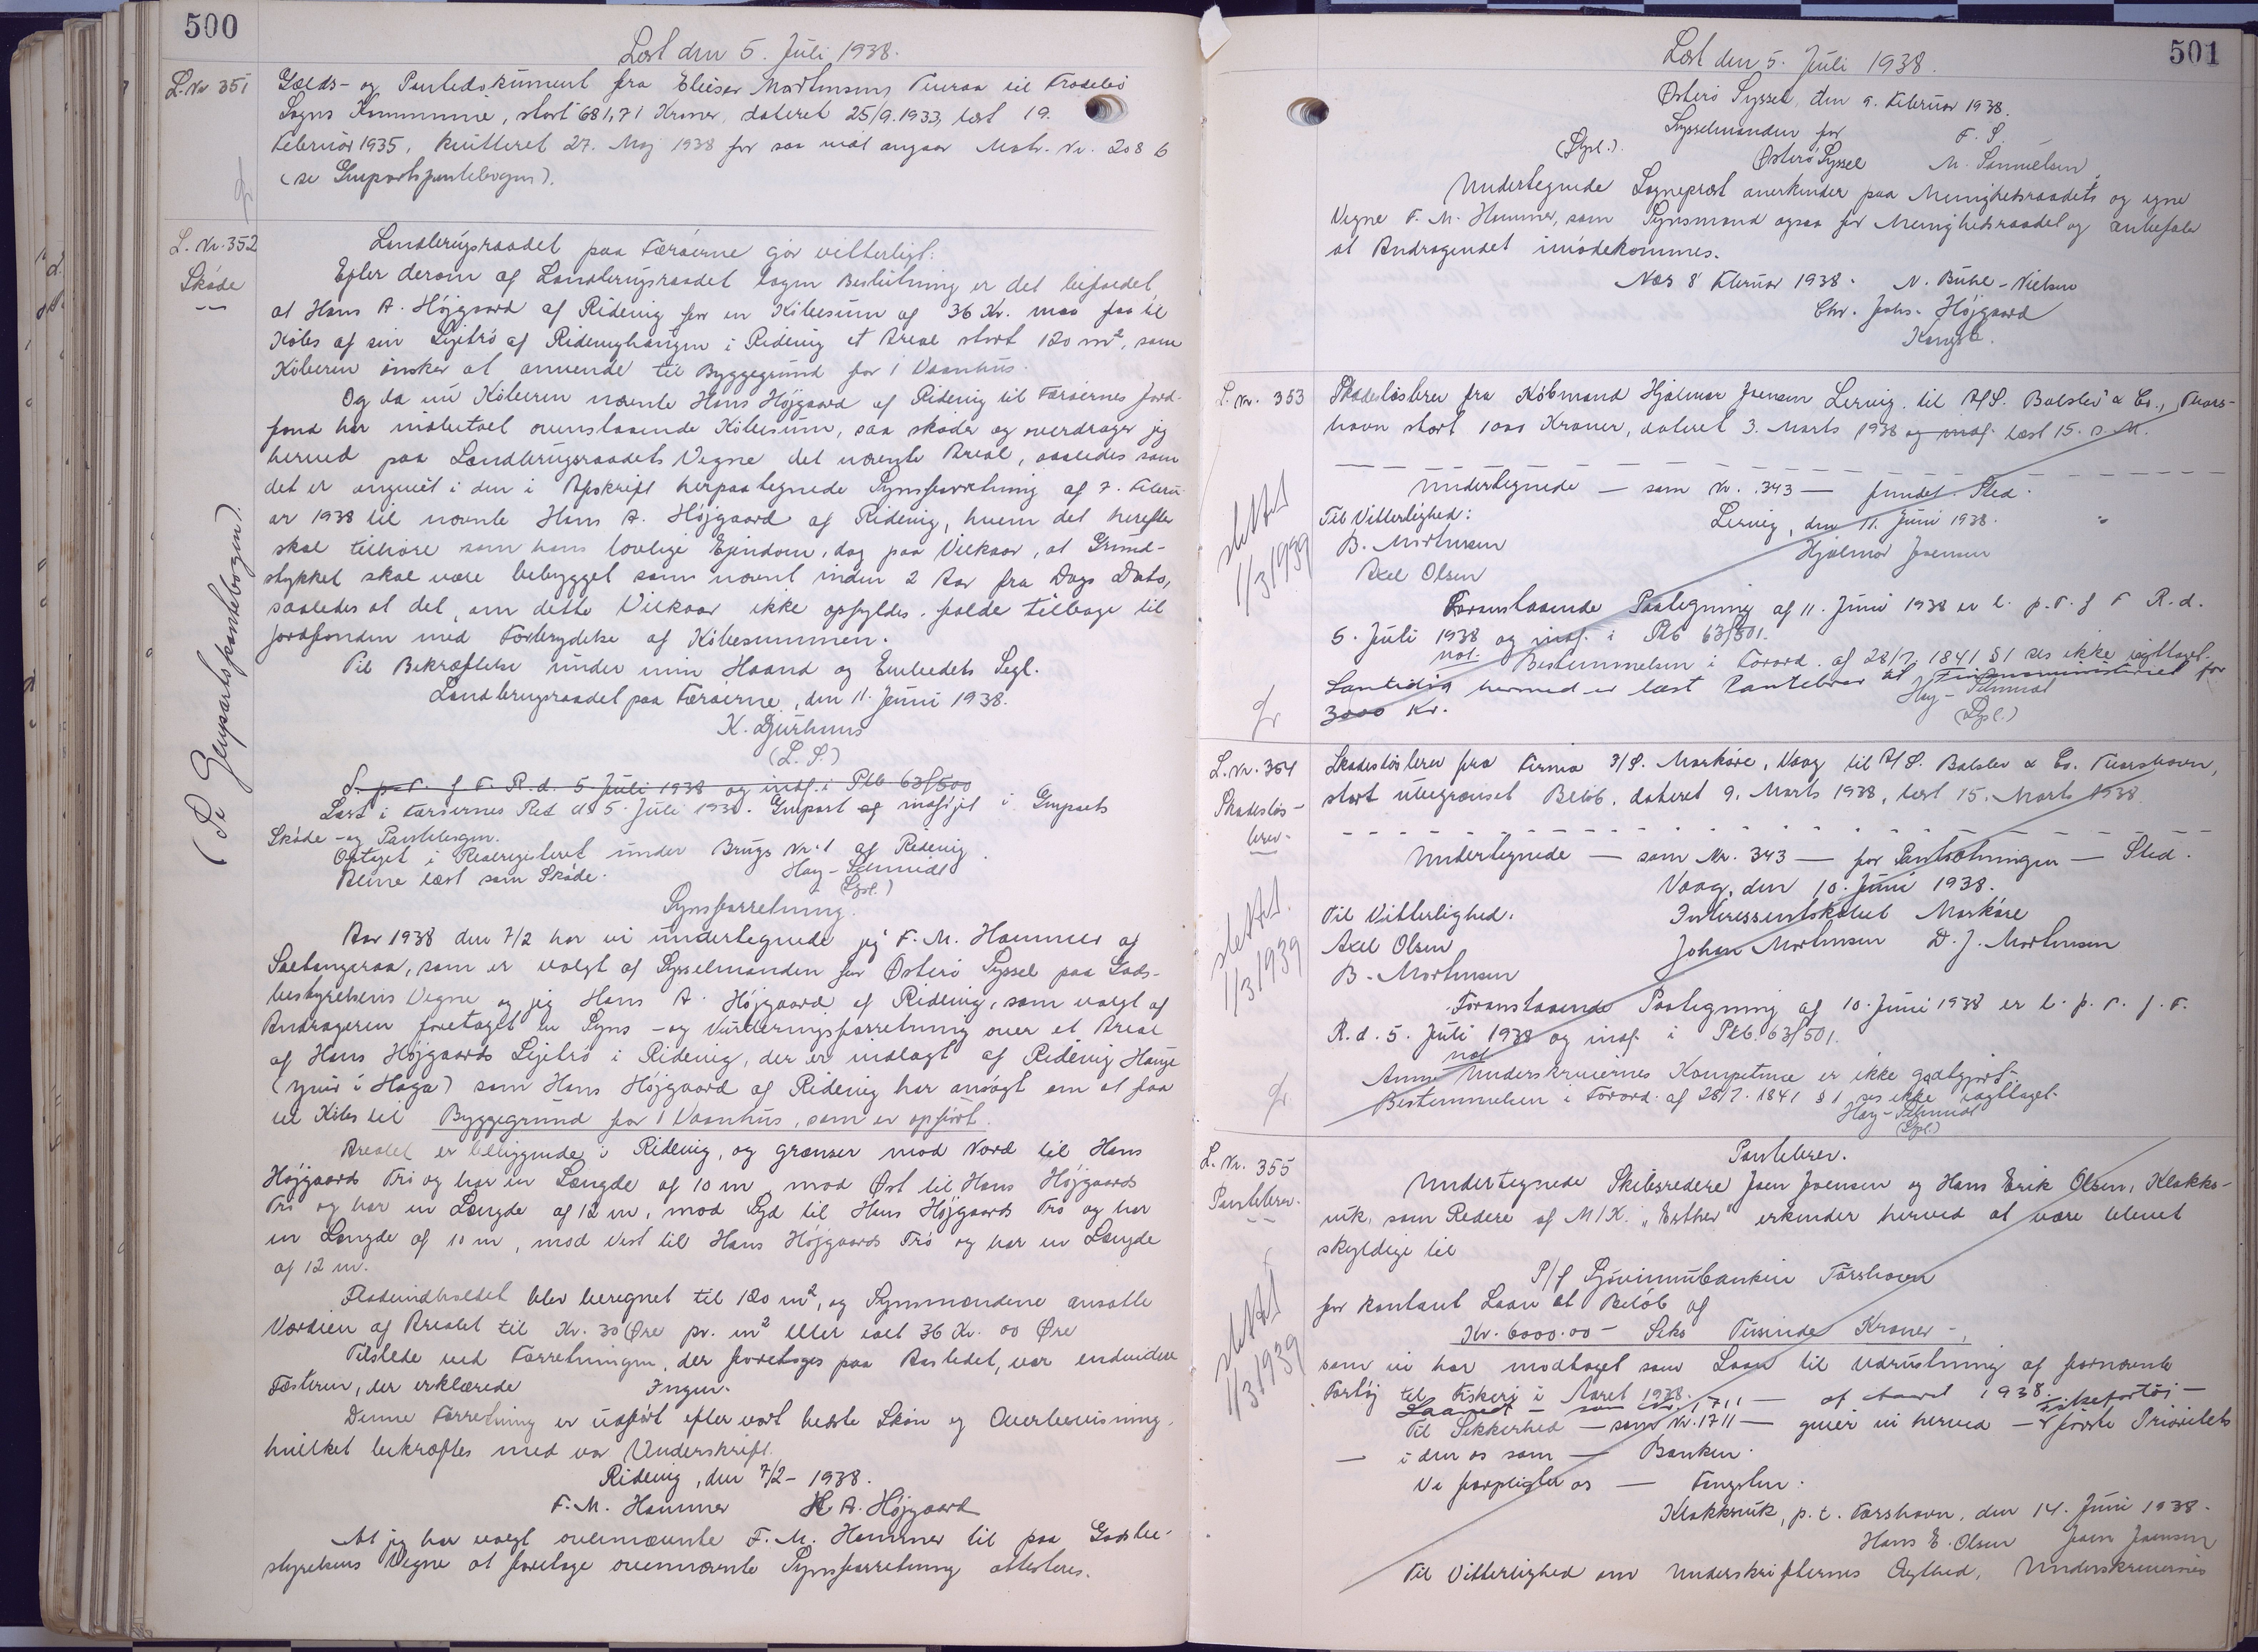 500
Læst den 5. Juli 1938.
L. Nr 351
Gælds- og Pantedokument fra Elieser Mortensens Tueraa til Frodebø
Sogns Kommune, stort 681,71 Kroner, dateret 25/9. 1933, læst 19.
Februar 1935, kvitteret 27. Maj 1938 for saa vidt angaar Matr. Nr. 208 b
(se Genpartspantebogen).
L. Nr. 352
Skøde
(Se Genpartspantebogen).
Landbrugsraadet paa Færøerne gør vitterligt:
Efter derom af Landbrugsraadet tagen Beslutning er det bifaldet,
at Hans A. Højgaard af Ridevig for en Købesum af 36 Kr. maa faa til
Købs af sin Lejetrø af Ridevighaugen i Ridevig et Areal stort 120 m², som
Køberen ønsker at anvende til Byggegrund for 1 Vaanhus.
Og da nu Køberen nævnte Hans Højgaard af Ridevig til Færøernes Jord-
fond har indbetalt ovenstaaende Købesum, saa skøder og overdrager jeg
herved paa Landbrugsraadets Vegne det nævnte Areal, saaledes som
det er angivet i den i Afskrift herpaategnede Synsforretning af 7. Febru-
ar 1938 til nævnte Hans A. Højgaard af Ridevig, hvem det herefter
skal tilhøre som hans lovlige Ejendom, dog paa Vilkaar, at Grund-
stykket skal være bebygget som nævnt inden 2 Aar fra Dags Dato,
saaledes at det, om dette Vilkaar ikke opfyldes, falde tilbage til
Jordfonden med Fortrydelse af Købesummen.
Til Bekræftelse under min Haand og Embedets Segl.
Landbrugsraadet paa Færøerne, den 11. Juni 1938.
K. Djurhuus
(L. S.)
L. p. T. f F. R. d. 5. Juli 1938 og indf. i Ptb 63/500
Læst i Færøernes Ret d. 5. Juli 1938. Genpart indføjet i Genparts
Skøde- og Pantebogen.
Optaget i Realregisteret under Brugs Nr. 1 af Ridevig.
Alene læst som Skøde.
Hay-Schmidt
(Lgsl.)
Synsforretning.
Aar 1938 den 7/2 har vi undertegnede jeg F. M. Hammer af
Saltangaraa, som er valgt af Sysselmanden for Østerø Syssel paa Gods-
bestyrelsens Vegne og jeg Hans A. Højgaard af Ridevig, som valgt af
Andrageren foretaget en Syns- og Vurderingsforretning over et Areal
af Hans Højgaards Lejetrø i Ridevig, der er indlagt af Ridevig Hauge
(yvir i Haga) som Hans Højgaard af Ridevig har ansøgt om at faa
til Købs til Byggegrund for 1 Vaanhus, som er opført.
Arealet er beliggende i Ridevig, og grænser mod Nord til Hans
Højgaards Trø og har en Længde af 10 m, mod Øst til Hans Højgaards
Trø og har en Længde af 12 m, mod Syd til Hans Højgaards Trø og har
en Længde af 10 m, mod Vest til Hans Højgaards Trø og har en Længde
af 12 m.
Fladeindholdet blev beregnet til 120 m², og Synsmændene ansatte
Værdien af Arealet til Kr. 30 Øre pr. m² eller ialt 36 Kr. 00 Øre
Tilstede ved Forretningen, der foretages paa Aastedet, var endvidere
Fæsteren, der erklærede Ingen.
Denne Forretning er udført efter vort bedste Skøn og Overbevisning,
hvilket bekræftes med vor Underskrift.
Ridevig, den 7/2 - 1938.
F. M. Hammer H. A. Højgaard
At jeg har valgt ovennævnte F. M. Hammer til paa Godsbe-
styrelsens Vegne at foretage ovennævnte Synsforretning attesteres.
501
Læst den 5. Juli 1938.
Østerø Syssel, den 9. Februar 1938.
Sysselmanden for F. S.
(Lgsl.). Østerø Syssel M. Samuelsen
Undertegnede Sognepræst anerkender paa Menighedsraadets og egne
Vegne F. M. Hammer, som Synsmand ogsaa for Menighedsraadet og anbefaler
at Andragendet imødekommes.
Næs 8 Februar 1938. N. Buhl-Nielsen
Chr. Johs. Højgaard
Kongsb.
L. Nr. 353
slettet
1/3 1939
Skadesløsbrev fra Købmand Hjalmar Joensen Lervig til A/S. Balslev & Co., Thors-
havn stort 1000 Kroner, dateret 3. Marts 1938 og indf. læst 15. s. M.
Undertegnede — som Nr. 343 — fundet Sted.
Til Vitterlighed: Lervig, den 11. Juni 1938.
B. Mortensen Hjalmar Joensen
Axel Olsen
Foranstaaende Paategning af 11. Juni 1938 er l. p. T. f F R. d.
5. Juli 1938 og indf. i Ptb 63/501.
not. Bestemmelsen i Forord. af 28/7 1841 § 1 ses ikke iagttaget.
Samtidig hermed er læst Pantebrev til Finansministeriet for
3000 Kr. Hay-Schmidt
(Lgsl.)
L. Nr. 354
Skadesløs-
brev.
slettet.
1/3 1939
Skadesløsbrev fra Firma I/S. Morkøre, Vaag til A/S. Balslev & Co. Thorshavn,
stort ubegrænset Beløb, dateret 9. Marts 1938, læst 15. Marts 1938.
Undertegnede — som Nr. 343 — for Pantsætningen — Sted.
Vaag, den 10. Juni 1938.
Til Vitterlighed: Interessentskabet Morkøre
Axel Olsen Johan Mortensen D. J. Mortensen
B. Mortensen
Foranstaaende Paategning af 10. Juni 1938 er l. p. T. f. F.
R. d. 5. Juli 1938 og indf. i Ptb. 63/501.
not
Anm: Underskrivernes Kompetence er ikke godtgjort.
Bestemmelsen i Forord. af 28/7. 1841 § 1 ses ikke iagttaget.
Hay-Schmidt
(Lgsl.)
L. Nr. 355
Pantebrev.
slettet
1/3 1939
Pantebrev.
Undertegnede Skibsredere Joen Joensen og Hans Erik Olsen, Klakks-
vik, som Redere af M/K. "Esther" erkender herved at være blevet
skyldige til
P/f Sjóvinnubankin Tórshavn
for kontant Laan et Beløb af
Kr. 6000.00 - Seks Tusinde Kroner -,
som vi har modtaget som Laan til Udrustning af fornævnte
Fartøj til Fiskeri i Aaret 1938.
Laanet — som Nr. 1711 — af Aaret 1938.
Til Sikkerhed — som Nr. 1711 — giver vi herved — Fiskefartøj — første Prioritets
— i den os som — Banken.
Vi forpligter os — Fængslen.
Klakksvik, p. t. Thorshavn, den 14. Juni 1938.
Hans E. Olsen Joen Joensen
Til Vitterlighed om Underskrifternes Ægthed, Underskrivernes